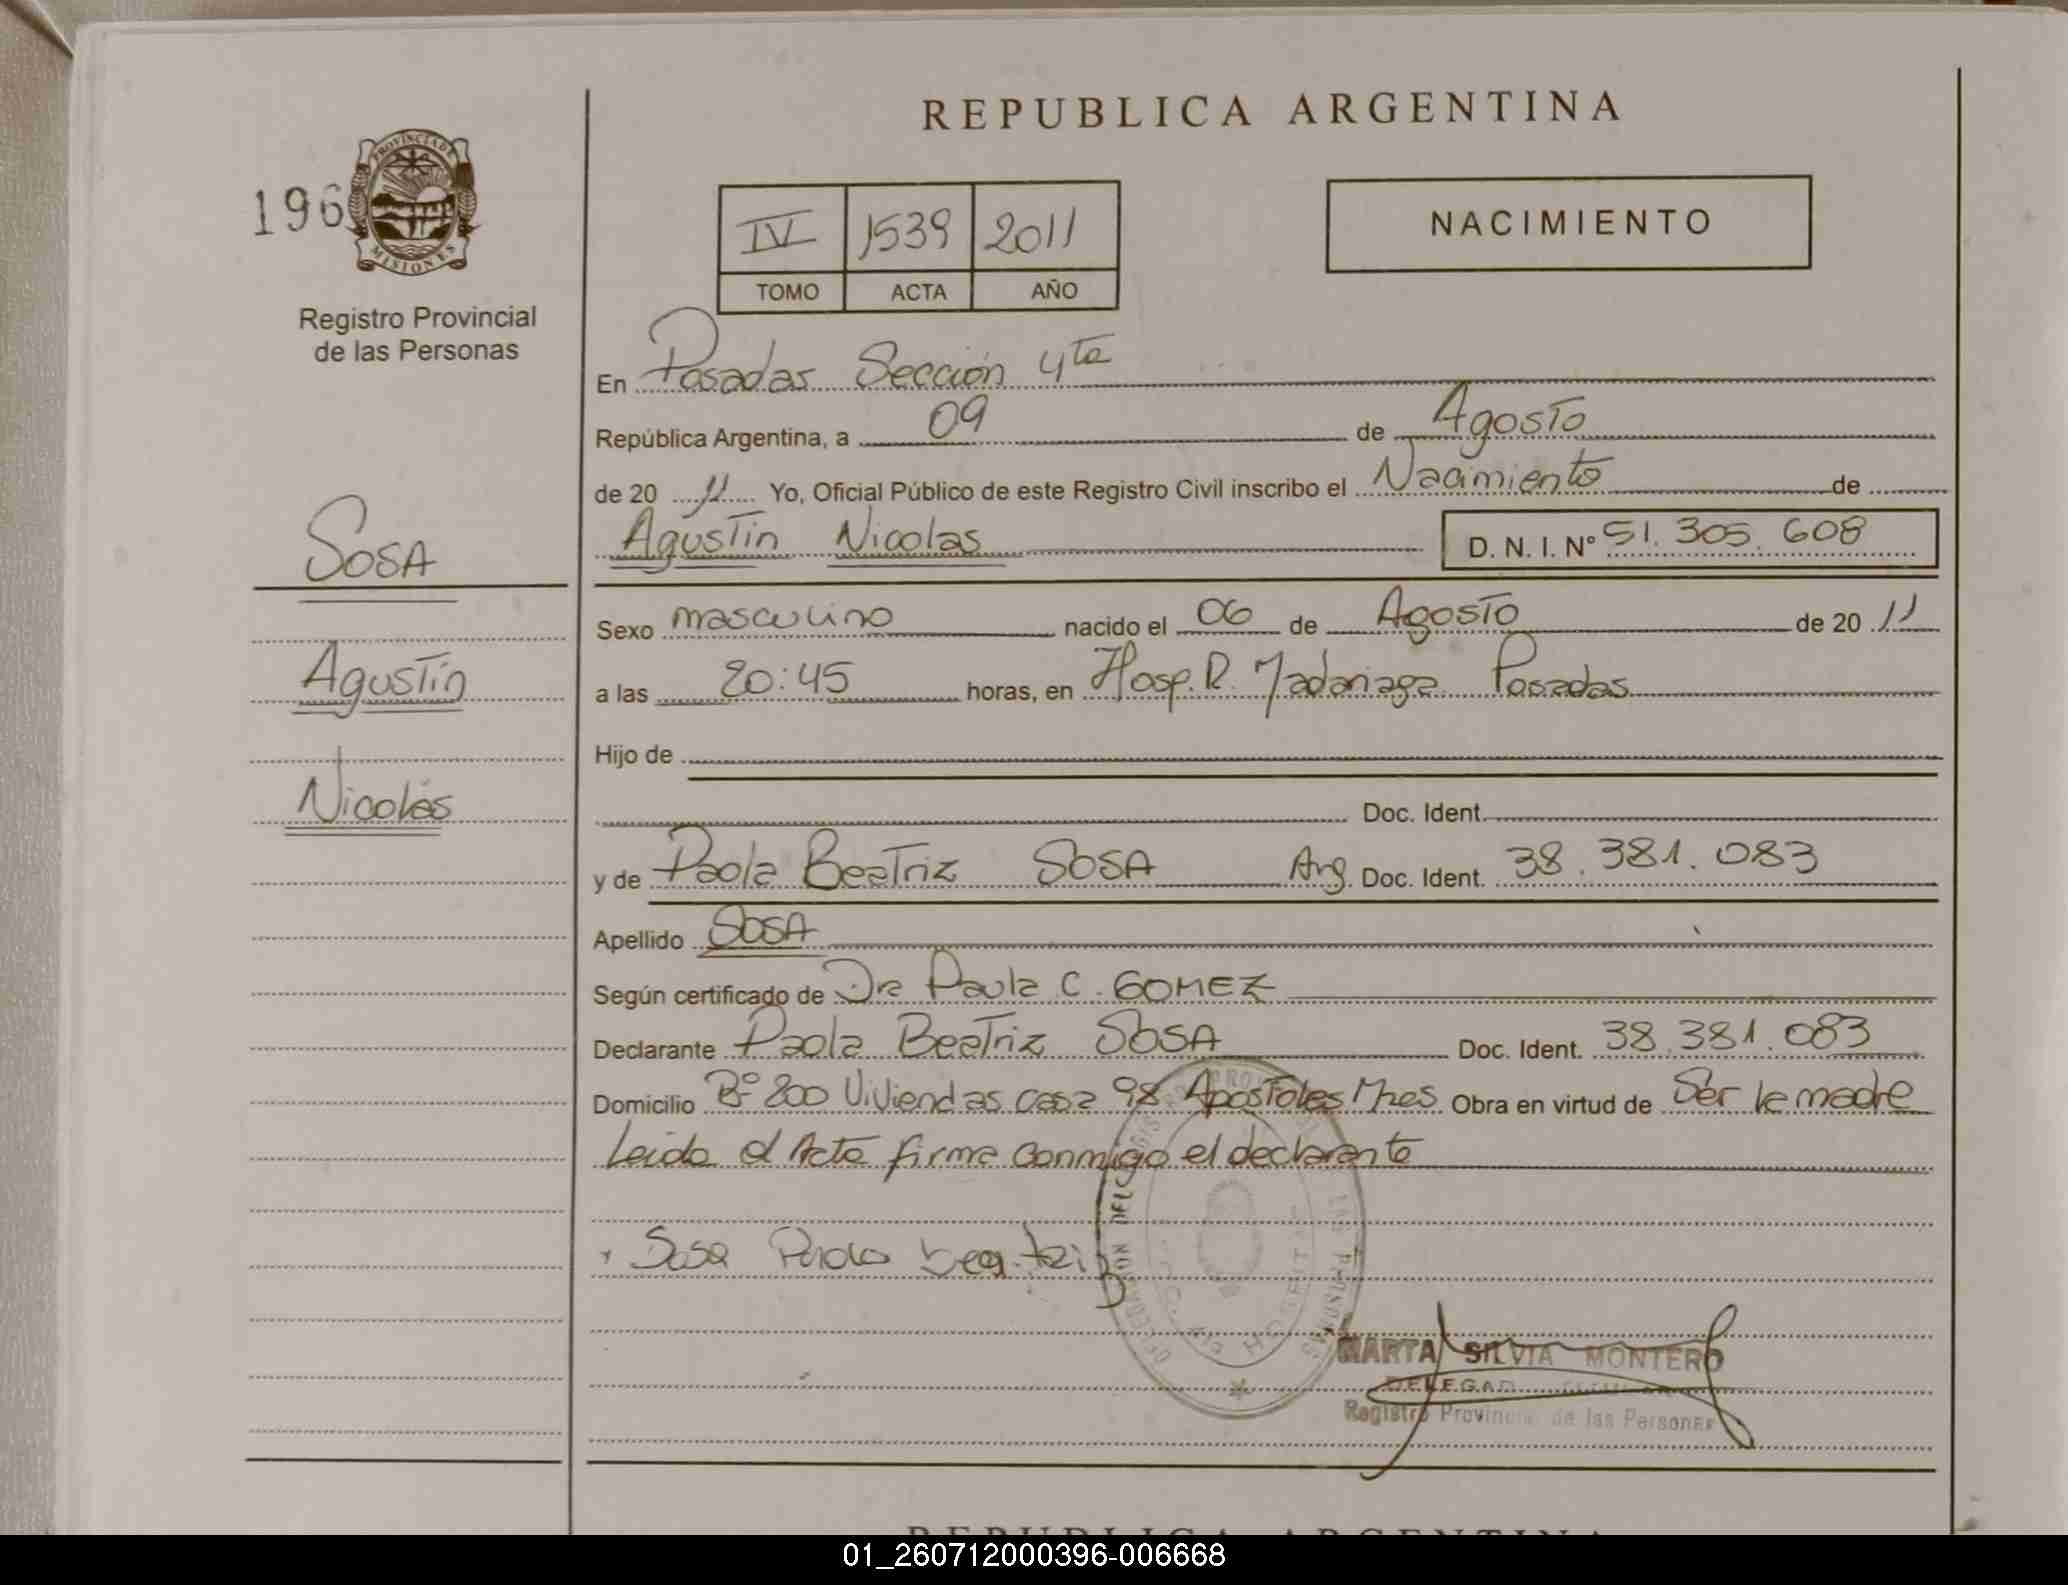 REPUBLICA ARGENTINA
196
PROVINCIA DE
MISIONES
Registro Provincial
de las Personas
IV 1539 2011
TOMO ACTA AÑO
NACIMIENTO
En Posadas Sección 4ta
República Argentina, a 09 de Agosto
de 20 11 Yo, Oficial Público de este Registro Civil inscribo el Nacimiento de
Agustín Nicolas D. N. I. N° 51.305.608
SOSA
Agustín
Nicolás
Sexo masculino nacido el 06 de Agosto de 20 11
a las 20:45 horas, en Hosp. R. Madariaga Posadas
Hijo de
Doc. Ident.
y de Paola Beatriz SOSA Arg. Doc. Ident. 38.381.083
Apellido SOSA
Según certificado de Dra Paula C. GOMEZ
Declarante Paola Beatriz SOSA Doc. Ident. 38.381.083
Domicilio B° 200 Viviendas casa 98 Apostoles Mnes Obra en virtud de Ser la madre
Leida el Acta firma conmigo el declarante
Sosa Paola beatriz
MARTA SILVIA MONTERO
Registro Provincial de las Personas
REPUBLICA ARGENTINA
01_260712000396-006668